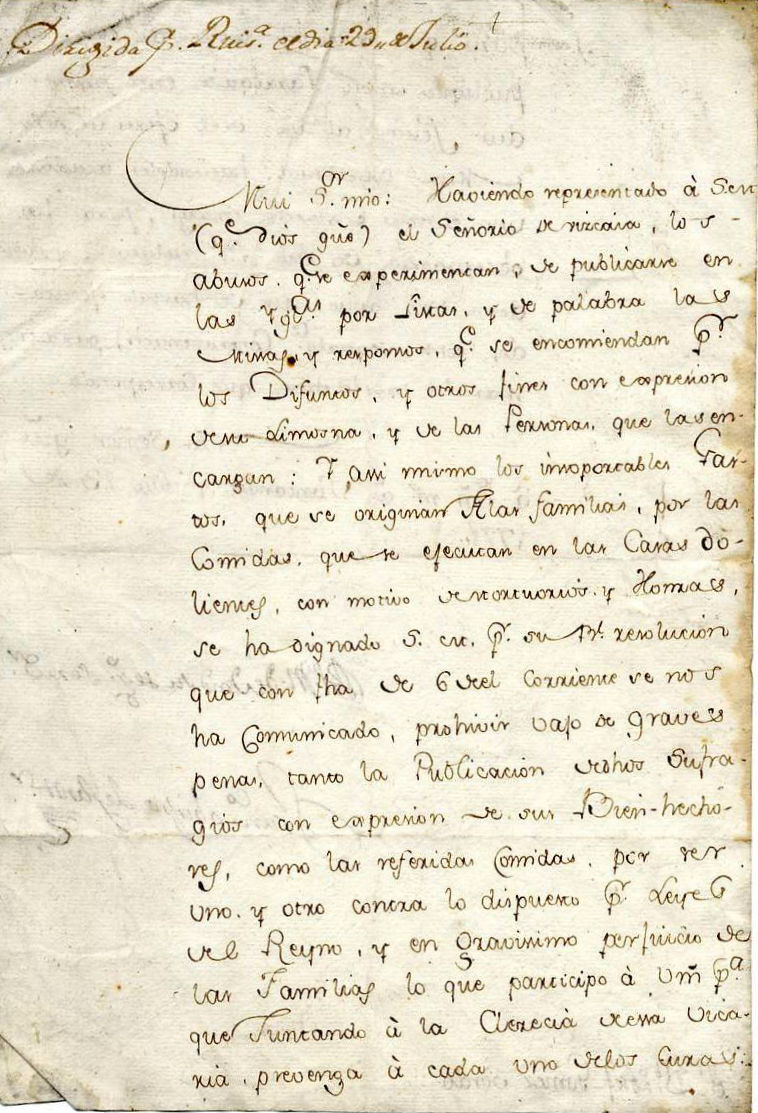 Dirigida pr. Ruisª. el dia 29 de Julio.
Mui Sor. mio: Haviendo representado à S.M
(qe. Dios gũe) el Señorio de vizcaia, los
abusos, qe. se experimentan, de publicarse en
las Ygªs. por Listas, y de palabra las
Misas, y responsos, qe. se encomiendan pr.
los Difuntos, y otros fines con expresion
de su Limosna, y de las Personas, que las en-
cargan: Y assi mismo los insoportables Gas-
tos, que se originan A las familias, por las
Comidas, que se efecutan en las Casas do-
lientes, con motivo de Mortuorios y Honrras,
se ha dignado S. M. pr. su Rl. resolucion
que con fha de 6 del corriente se nos
ha Comunicado, prohivir vajo de graves
penas, tanto la Publicacion de dhos Sufra-
gios con expresion de sus Bien-hecho-
res, como las referidas Comidas, por ser
uno, y otro contra lo dispuesto pr. Leyes
del Reyno, y en Gravisimo perjuicio de
las Familias lo que participo à Vm̃ pª.
que Juntando à la Clerecia de essa Vica-
ria, prevenga à cada uno de los Curas: